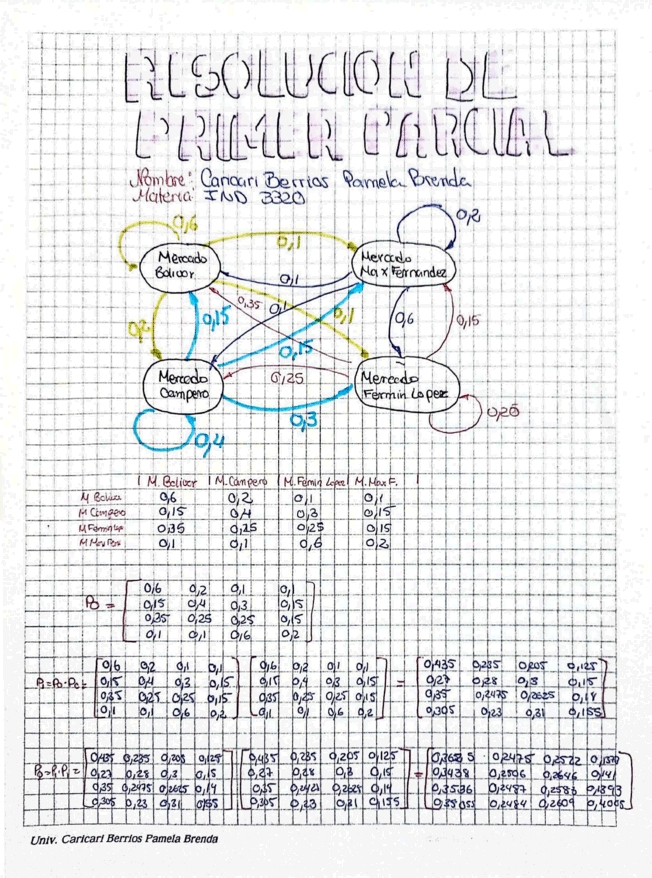 RESOLUCION DE
PRIMER PARCIAL
Nombre: Caricari Berrios Pamela Brenda
Materia: IND 3320
0,6 0,1 0,2
Mercado Bolivar
Mercado Max Fernandez
0,1
0,35 0,1
0,2 0,15 0,1 0,6 0,15
0,15
0,25
Mercado Campero
Mercado Fermin Lopez
0,3
0,4
M. Bolivar M. Campero M. Fermin Lopez M. Max F.
M Bolivar 0,6 0,2 0,1 0,1
M Campero 0,15 0,4 0,3 0,15
M Fermin Lop 0,35 0,25 0,25 0,15
0,1 0,1 0,6 0,2
P0 =
0,6 0,2 0,1 0,1
0,15 0,4 0,3 0,15
0,35 0,25 0,25 0,15
0,1 0,1 0,6 0,2
P1 = P0 · P0 =
0,6 0,2 0,1 0,1 0,6 0,2 0,1 0,1 = 0,435 0,235 0,205 0,125
0,15 0,4 0,3 0,15 0,15 0,4 0,3 0,15 0,27 0,28 0,3 0,15
0,35 0,25 0,25 0,15 0,35 0,25 0,25 0,15 0,35 0,2475 0,2625
0,1 0,1 0,6 0,2 0,1 0,1 0,6 0,2 0,305 0,23 0,31 0,155
0,435 0,235 0,205 0,125 0,435 0,235 0,205 0,125 = 0,2475 0,2522
0,27 0,28 0,3 0,15 0,27 0,28 0,3 0,15 0,3438 0,2506 0,2646 0,141
0,35 0,2475 0,2625 0,14 0,35 0,14 0,3536 0,2487 0,2586 0,1393
0,305 0,23 0,31 0,155 0,305 0,23 0,31 0,155 0,2484 0,2609
Univ. Caricari Berrios Pamela Brenda